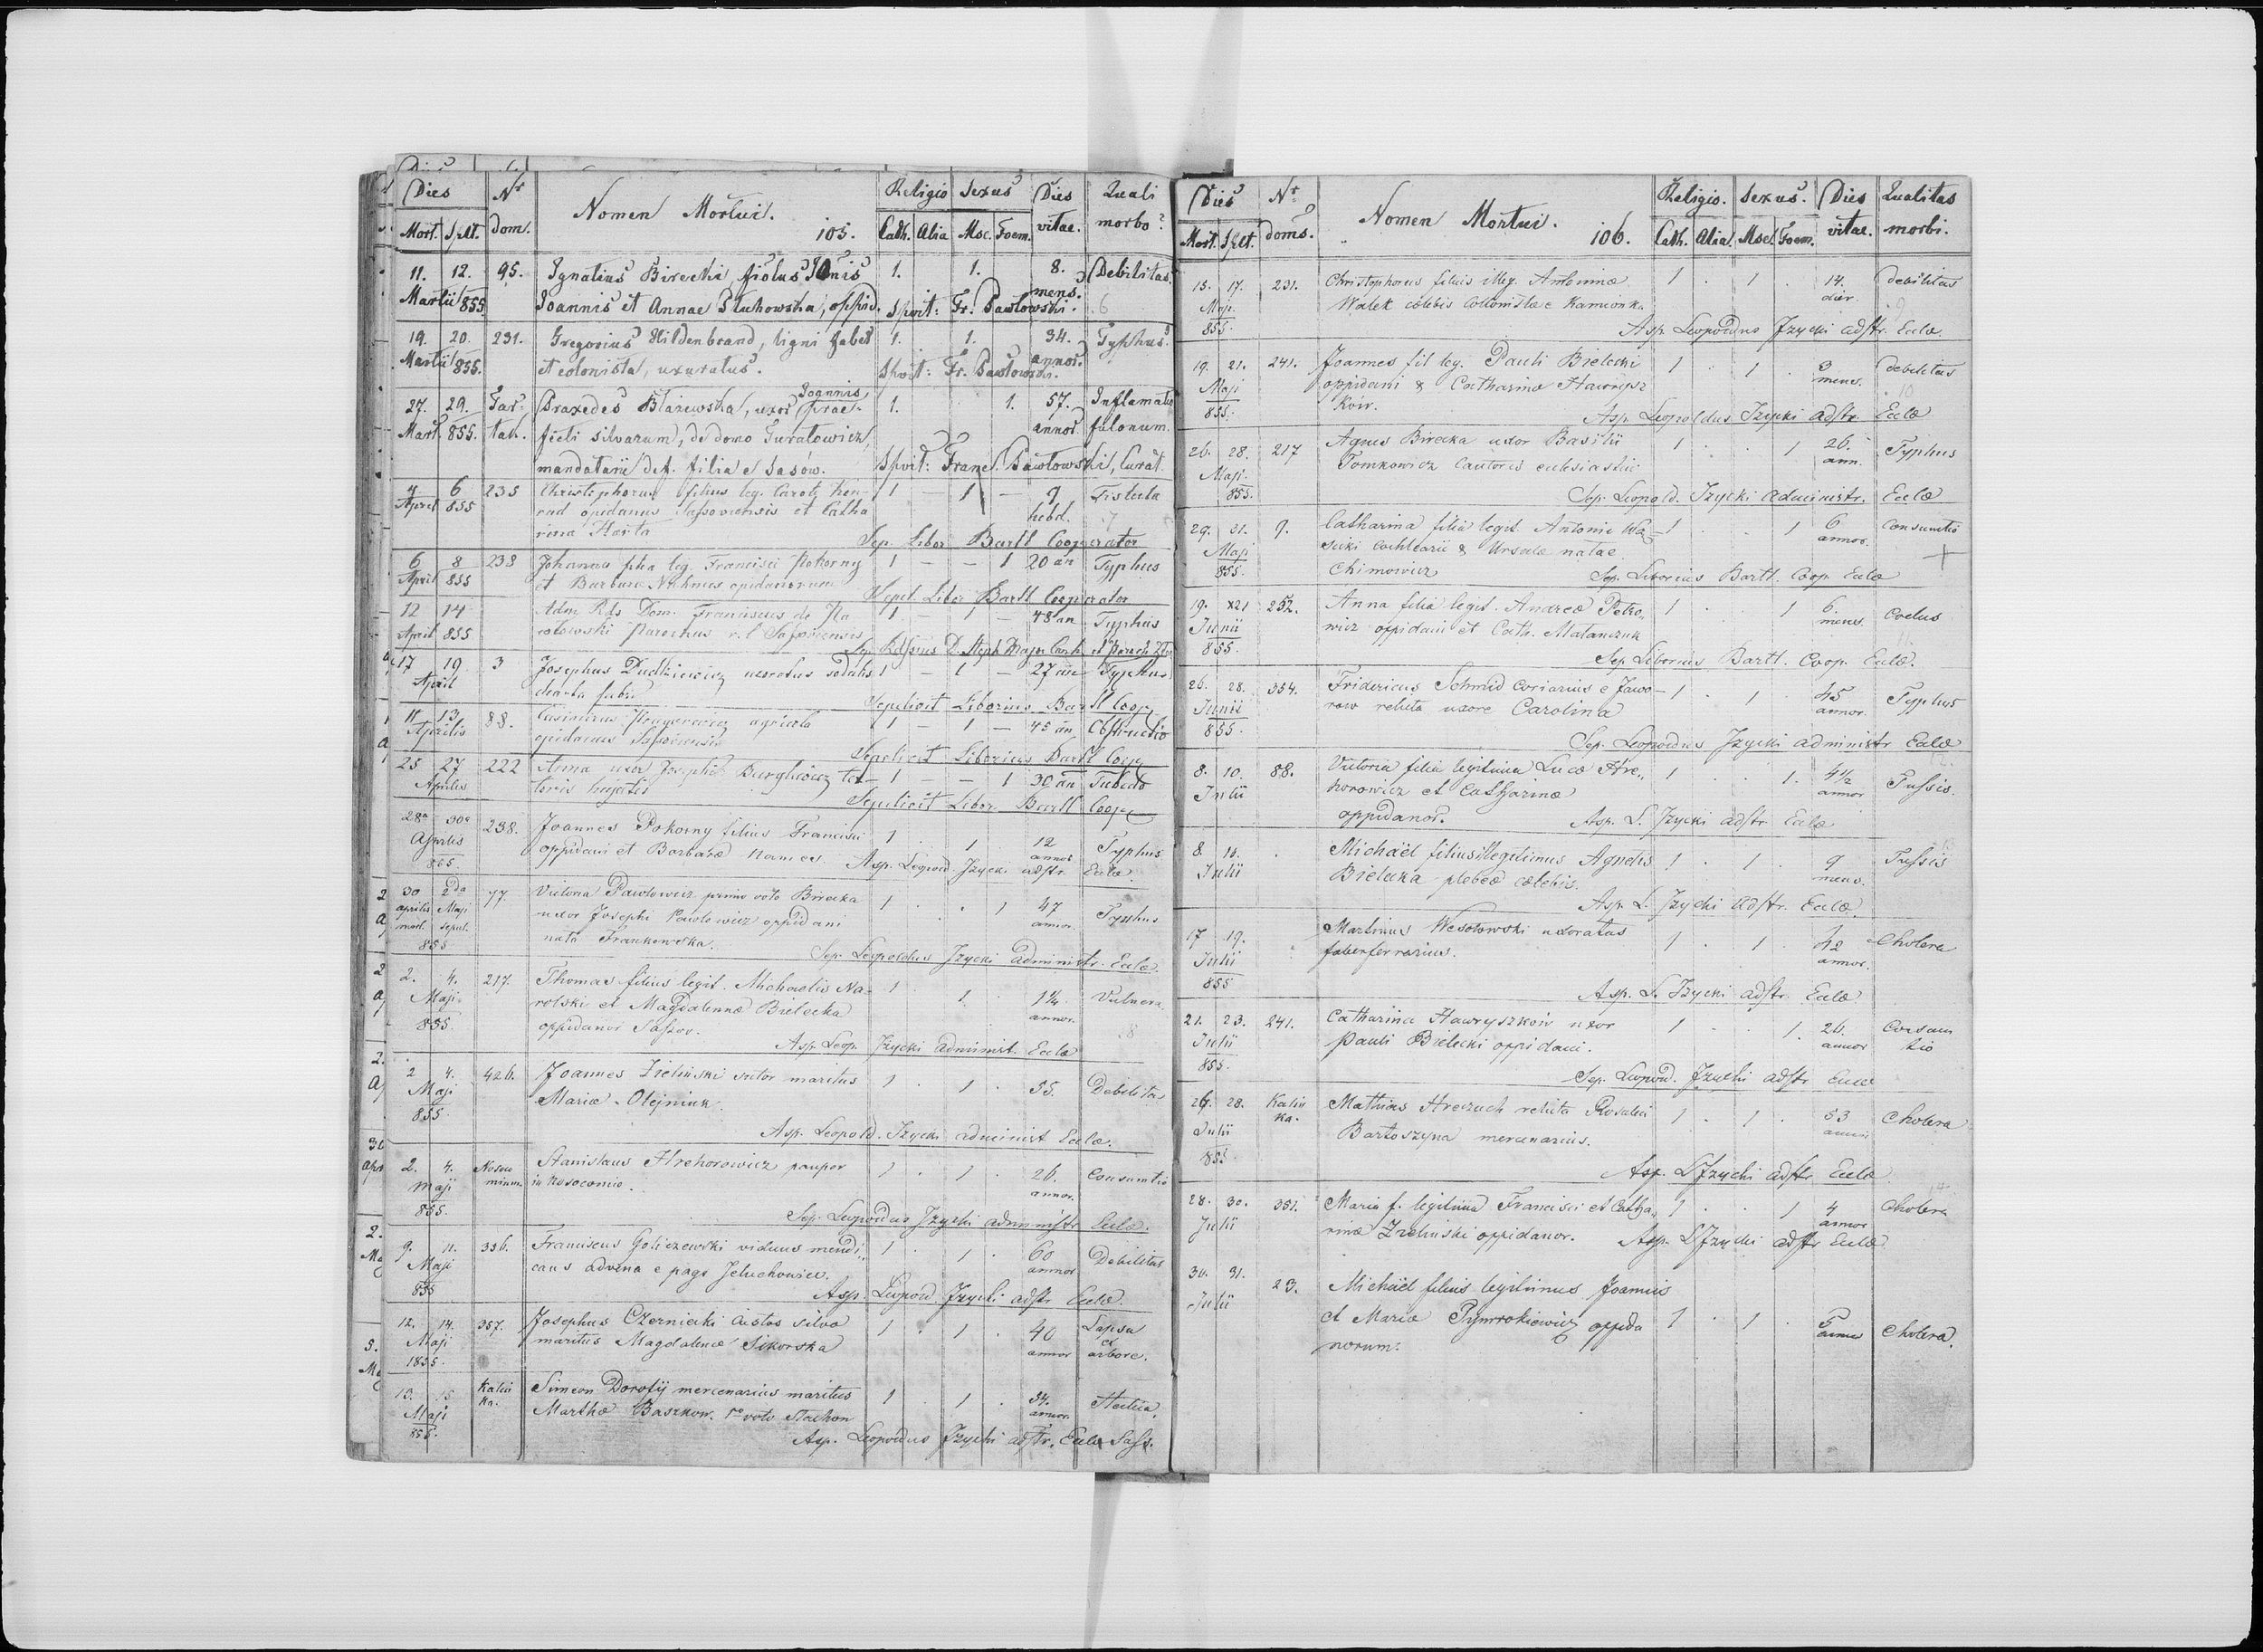 Dies Nr Nomen Mortui. 105. Religio Sexus Dies vitae. Quali morbo?
Mort. Splt. dom. Cath. Alia Msc. Foem.
11. 12. 95. Ignatius Birecki, fiolus 1. 1. 8. Debilitas
Martii 855 Joannis et Annae Stuhowska, oppid. mens.
Spvit: Fr. Pawlowski.
19. 20. 231. Gregorius Hildenbrand, ligni faber 1. 1. 34. Typhus.
Martii 855. et colonista, uxoratus. annor.
Spvit: Fr. Pawlowski.
27. 29. Tar- Praxedes Blazewska, uxor Joannis prae- 1. 1. 57. Inflamatio
Mart. 855. tak. fecti silvarum, de domo Turatowicz, annor. pulonum.
mandatarii def. filia e Sasów. Spvit: Franc. Pawlowski, Curat.
4 6 235 Christophorus filius leg. Caroli Kon- 1 – 1 – 9 Fistula
April 855 rad opidanus Sassoviensis et Catha hebd.
rina Harta
Sep. Libor Bartl Cooperator
6 8 238 Johanna filia leg. Francisci Pokorny 1 – – 1 20 an Typhus
April 855 et Barbara opidanorum
Sepel. Libor Bartl Cooperator
12 14 Adm Rds Dom. Franciscus de 1 – 1 – 48 an Typhus
April 855 Parochus r. l Sassoviensis
17 19 3 Josephus Dudkiewicz uxoratus sodalis 1 – 1 – 27 Typhus
April
Sepelivit Liborius Bartl Coop
11 13 88. Casimirus agricola 1 – 1 – 45 an Obstructio
Aprilis opidanus Sassoviensis
Sepelivit Liborius Bartl Coop
25 27 222 Anna uxor Josephi tex- 1 – – 1 30 an Tabedo
Aprilis toris
Sepelivit Libor Bartl Coop
28a 30a 238. Joannes Pokorny filius Francisci 1 1 12 Typhus
Aprilis oppidani et Barbarae annor.
855. Asp. Leopold Jzycki adstr. Eclae
30 2da 77. Victoria Pawlowicz primo voto Birecka 1 . . 1 47 Typhus
aprilis Maji uxor Josephi Pawlowicz oppidani annor.
mort. sepul. nata Frankowska.
855 Sep. Leopoldus Jzycki administr. Eclae
2. 4. 217. Thomas filius legit. Michaelis Na- 1 1. 1¼ Vulnera
Maji rolski et Magdalennae Bielecka annor.
855. oppidanor Sassov.
Asp. Leop. Jzycki administ. Eclae
2 4. 426. Joannes Zielinski sutor maritus 1 . 1 . 55. Debilitas
Maji Mariae Olejniuk.
855.
Asp. Leopold. Jzycki administ Eclae.
2. 4. Stanislaus Hrehorowicz pauper 1 . 1 . 26. Consumtio
Maji in Nosocomio. annor.
855.
Sep. Leopoldus Jzycki administr Eclae.
9. 11. 336. Franciscus Goliczewski viduus mendi- 1 . 1 . 60 Debilitas
Maji cans advena e pago Jeluchowice. annor
855 Asp. Leopold Jzycki adstr Eclae.
12. 14. 357. Josephus Czerniecki custos silvae 1 . 1 . 40 Lapsu
Maji maritus Magdalenae Sikorska annor arbore.
1855.
13. 15 Katin Simeon Dorofij mercenarius maritus 1 . 1 . 34. Hectica.
Maji ka. Marthae Baszkow. 1o voto Stachon annor.
855. Asp. Leopoldus Jzycki adstr. Eclae Sass.
Dies Nr. Nomen Mortui. 106. Religio. Sexus. Dies vitae. Qualitas morbi.
Mort. Splt. doms. Cath. Alia. Mscl. Foem.
15. 17. 231. Christophorus filius illeg. Antoninae 1 . 1 . 14. debilitas
Maji. Walek caelebis Collonistae e Kamionka. dier.
855. Asp. Leopoldus Jzycki adstr. Eclae.
19. 21. 241. Joannes fil leg. Pauli Bielecki 1 . 1 . 3 debilitas
Maji oppidani & Catharinae Hawrysz mens.
855. ków.
Asp. Leopoldus Jzycki adstr. Eclae
26. 28. 217 Agnes Birecka uxor Basilii 1 . . 1 26. Typhus
Maji. Tomkowicz Cantoris eclesiastici ann.
855. Sep. Leopold. Jzycki administr. Eclae
29. 31. 9. Catharina filia legit. Antonii Wa- 1 . 1 6 Consumtio
Maji sicki Cochlearii & Ursulae natae annor.
855. Chimowicz Sep. Liborius Bartl. Coop Eclae
19. x21 252. Anna filia legit. Andreae Petro- 1 . 1 6. Coelus
Junii wicz oppidani et Cath. Matanczuk mens.
855. Sep. Liborius Bartl. Coop. Eclae.
26. 28. 354. Fridericus Schmid coriarius e Jawo- 1 . 1 . 45 Typhus
Junii row relicta uxore Carolina annor.
855. Sep. Leopoldus Jzycki administr Eclae
8. 10. 88. Victoria filia legitima Lucae Hre- 1 . . 1. 4½ Tussis.
Julii horowicz et Catharinae annor
oppidanor. Asp. L. Jzycki adstr Eclae
8. 10. Michaël filius illegitimus Agnetis 1 . 1 . 9 Tussis
Julii Bielecka plebeae caelebis. mens.
Asp. L. Jzycki adstr. Eclae.
17 19. Martinus Wesolowski uxoratus 1 . 1 . 42 Cholera
Julii faberferrarius. annor.
855 Asp. L. Jzycki adstr. Eclae
21. 23. 241. Catharina Hawryszków uxor 1 . . 1. 26. Consum
Julii Pauli Bielecki oppidani. annor tio
855. Sep. Leopold. Jzycki adstr Eclae
26. 28. Katin Mathias Hreczuch relicta Rosalia 1 . 1 . 53 Cholera
Julii ka. Bartoszyna mercenarius. annor
855 Asp. L Jzycki adstr Eclae
28. 30. 351. Maria f. legitima Francisci et Catha- 1 . . 1 4 Cholera
Julii rinae Zielinski oppidanor. annor
Asp. L Jzycki adstr Eclae
30. 31. 23. Michaël filius legitimus Joannis
Julii et Mariae oppida 1 . 1 . 5 Cholera.
norum. annor